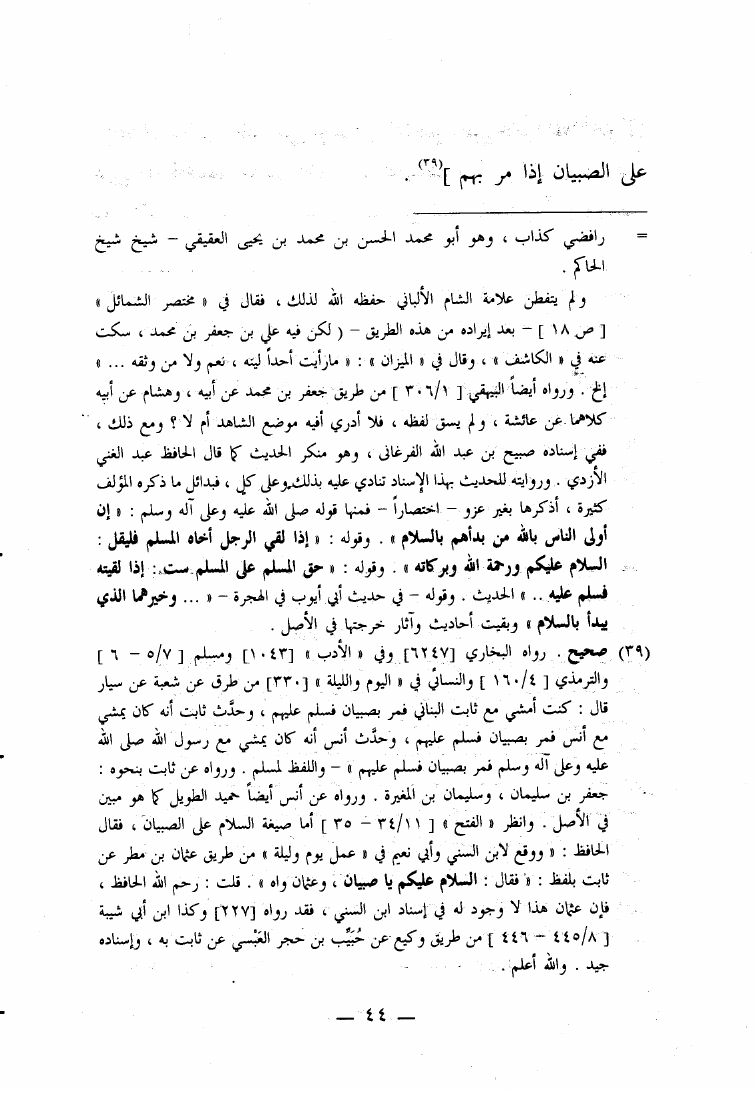 على الصبيان إذا مر بهم ](٣٩) .
= رافضي كذاب ، وهو أبو محمد الحسن بن محمد بن يحيى العقيقي – شيخ شيخ
الحاكم .
ولم يتفطن علامة الشام الألباني حفظه الله لذلك ، فقال في « مختصر الشمائل »
[ ص ١٨ ] – بعد إيراده من هذه الطريق – ( لكن فيه علي بن جعفر بن محمد ، سكت
عنه في « الكاشف » ، وقال في « الميزان » : « مارأيت أحداً لينه ، نعم ولا من وثقه ... »
إلخ . ورواه أيضاً البيهقي [ ٣٠٦/١ ] من طريق جعفر بن محمد عن أبيه ، وهشام عن أبيه
كلاهما عن عائشة ، ولم يسق لفظه ، فلا أدري أفيه موضع الشاهد أم لا ؟ ومع ذلك ،
ففي إسناده صبيح بن عبد الله الفرغانى ، وهو منكر الحديث كما قال الحافظ عبد الغني
الأزدي . وروايته للحديث بهذا الإسناد تنادي عليه بذلك وعلى كل ، فبدائل ما ذكره المؤلف
كثيرة ، أذكرها بغير عزو – اختصاراً – فمنها قوله صلى الله عليه وعلى آله وسلم : « إن
أولى الناس بالله من بدأهم بالسلام » . وقوله : « إذا لقي الرجل أخاه المسلم فليقل :
السلام عليكم ورحمة الله وبركاته » . وقوله : « حق المسلم على المسلم ست : إذا لقيته
فسلم عليه .. » الحديث . وقوله – في حديث أبي أيوب في الهجرة – « ... وخيرهما الذي
يبدأ بالسلام » وبقيت أحاديث وآثار خرجتها في الأصل .
(٣٩) صحيح . رواه البخاري [٦٢٤٧] وفي « الأدب » [١٠٤٣] ومسلم [ ٥/٧ – ٦ ]
والترمذي [ ١٦٠/٤ ] والنسائي في « اليوم والليلة » [٣٣٠] من طرق عن شعبة عن سيار
قال : كنت أمشي مع ثابت البناني فمر بصبيان فسلم عليهم ، وحدَّث ثابت أنه كان يمشي
مع أنس فمر بصبيان فسلم عليهم ، وحدَّث أنس أنه كان يمشي مع رسول الله صلى الله
عليه وعلى آله وسلم فمر بصبيان فسلم عليهم » – واللفظ لمسلم . ورواه عن ثابت بنحوه :
جعفر بن سليمان ، وسليمان بن المغيرة . ورواه عن أنس أيضاً حميد الطويل كما هو مبين
في الأصل . وانظر « الفتح » [ ٣٤/١١ – ٣٥ ] أما صيغة السلام على الصبيان ، فقال
الحافظ : « ووقع لابن السني وأبي نعيم في « عمل يوم وليلة » من طريق عثمان بن مطر عن
ثابت بلفظ : « فقال : السلام عليكم يا صبيان ، وعثمان واه » . قلت : رحم الله الحافظ ،
فإن عثمان هذا لا وجود له في إسناد ابن السني ، فقد رواه [٢٢٧] وكذا ابن أبي شيبة
[ ٤٤٥/٨ – ٤٤٦ ] من طريق وكيع عن حُبَيِّب بن حجر العَبْسي عن ثابت به ، وإسناده
جيد . والله أعلم .
— ٤٤ —